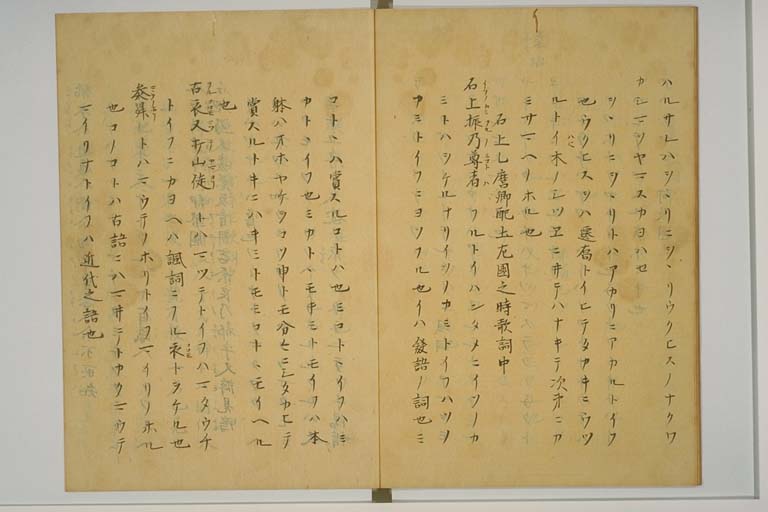 ハルサレハシヽリニシヽリウクヒスノナクワ
カシマシヤマスカヨハセ
シヽリニシヽリトハアカリニアカルトイフ
也ウクヒスツハ遷喬トイヒテタカキニウツ
ルトイ木ノシツヱニ井テハナキテ次第ニカ
ミサマヘノホル也
石上乙麿卿配土左国之時歌詞中
石上振乃尊者 フルトイハンタメニイソノカ
ミトハシケルナリイソノカミトイフハツシ
カミトイフニヨソフル也イハ發語ノ詞也ミ
コトハハ賞スルコトハ也ミコトテイフハミ
カトヽイフ也ミカトハモキミトモイフハ本
躰ハオホヤケツコソ申トモ分々ニシタカヒテ
賞スルトキニハキミトモミコトヽモイヘル
也
古衣又打山従 トハマツテトイフハマタウチ
トイフニカヨヘハ諷詞ニフル衣トツケル也
参昇 トハマウテノホリトイフマイリソホル
也コノコトハ古語ニハマ井テトカクマウテ
マイリナトイフハ近代之語也